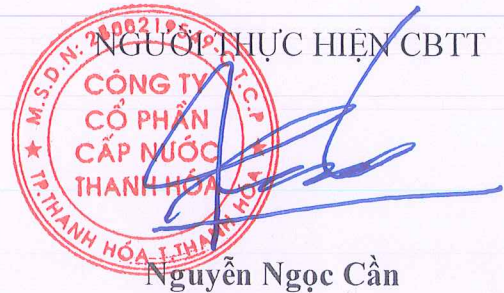 NGƯỜI THỰC HIỆN CBTT
CÔNG TY
CỔ PHẦN
CẤP NƯỚC
THANH HÓA
TP.THANH HÓA-T.THANH HÓA
Nguyễn Ngọc Cần